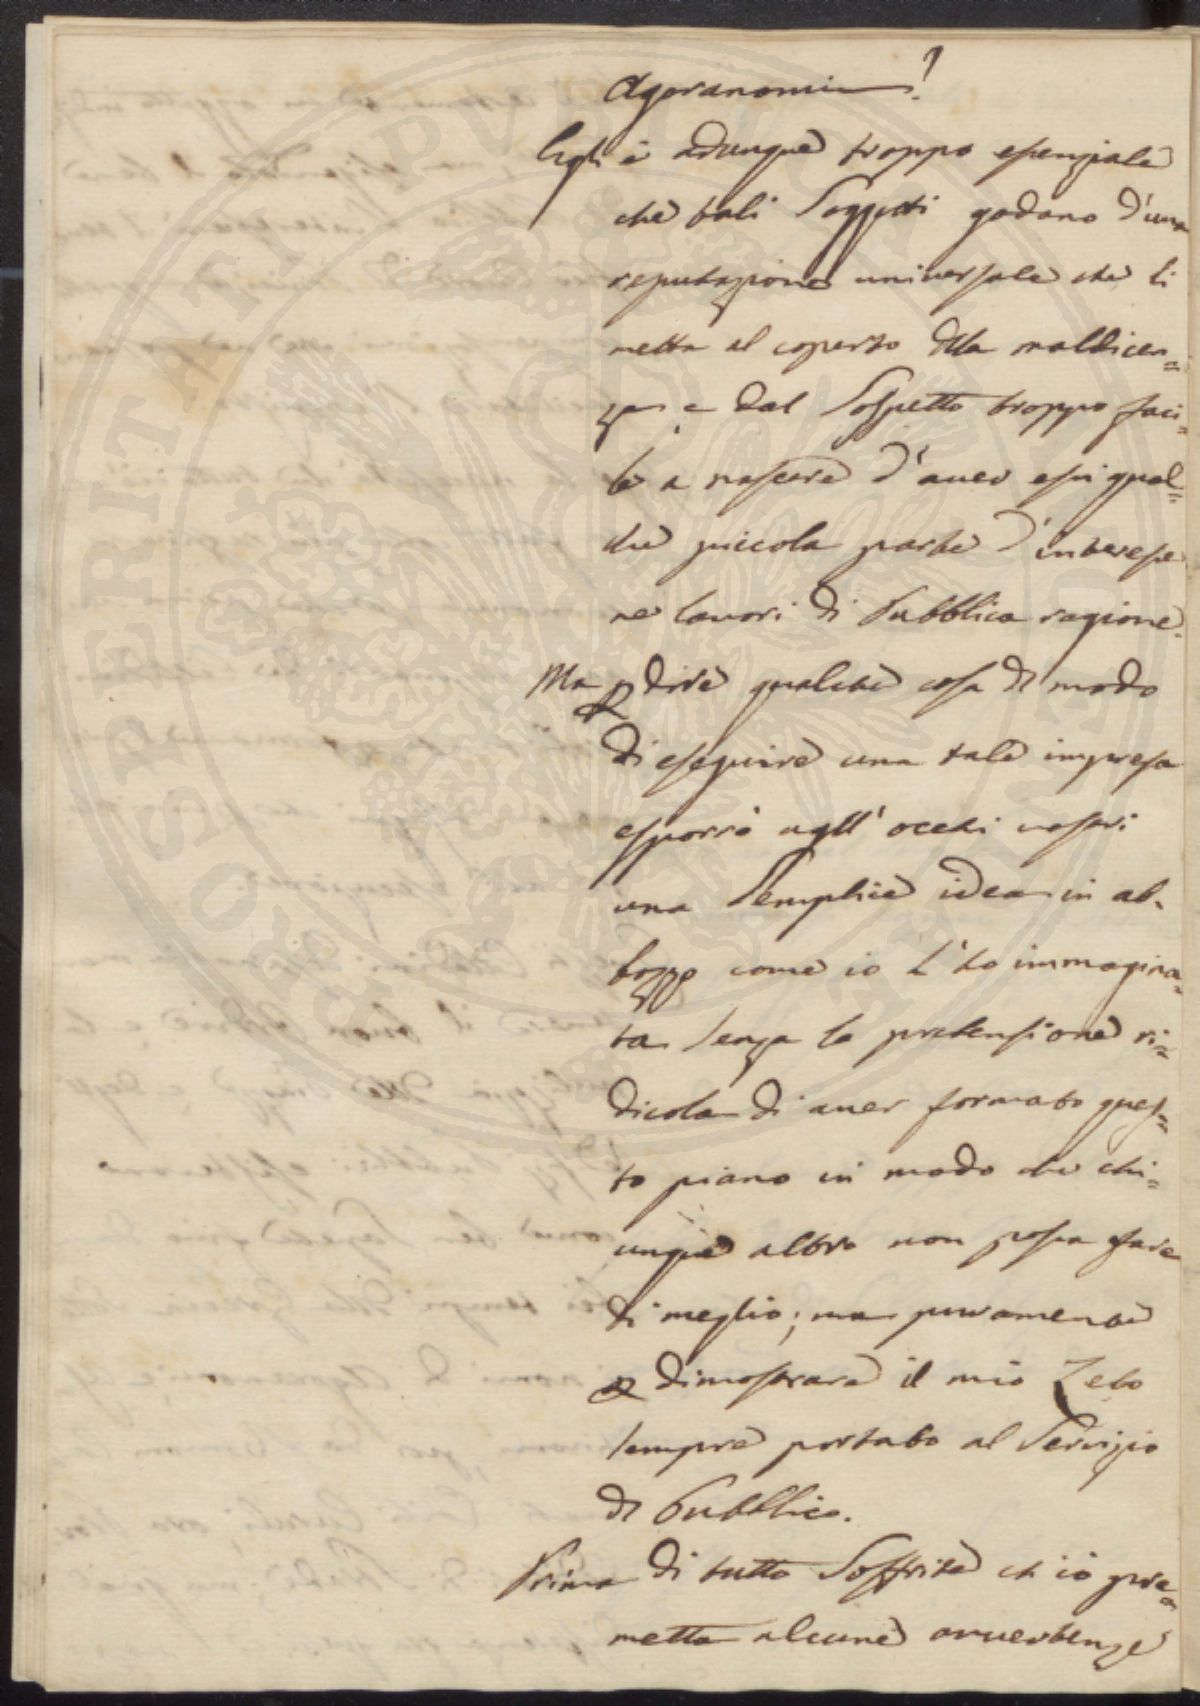 Agoranomi?
Egli è adunque troppo essenziale
che tali Soggetti godano d'una
reputazione universale che li
metta al coperto della maldicen=
za e dal Sospetto troppo faci=
le a nascere d'aver essi qual=
che piccola parte d'interesse
ne lavori di Pubblica ragione.
Ma p dire qualche cosa del modo
di eseguire una tale impresa
esporrò agll' occhi vostri
una Semplice idea in ab=
bozzo come io l'ho immagina=
ta senza la pretensione ri=
dicola di aver formato ques=
to piano in modo che chi=
unque altro non possa fare
di meglio; ma puramente
p dimostrare il mio Zelo
sempre portato al Servizio
del Pubblico.
Prima di tutto Soffrite ch' io pre=
metta alcune avvertenze
PROSPERITATI PVBLICAE